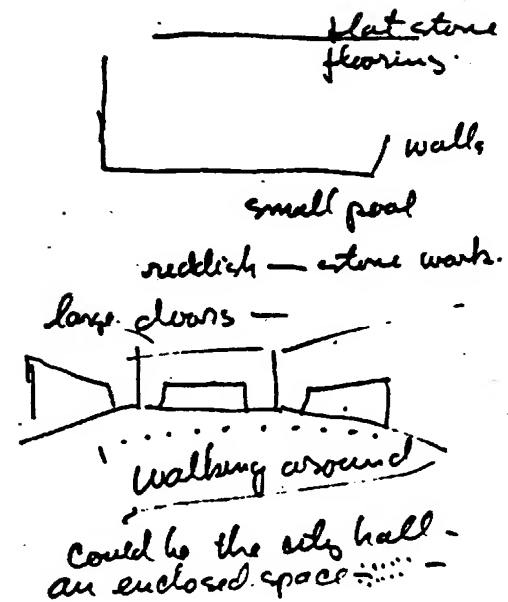 flat stone
flooring.
walls
small pool
reddish — stone work.
large doors —
walking around
Could be the city hall -
an enclosed space -